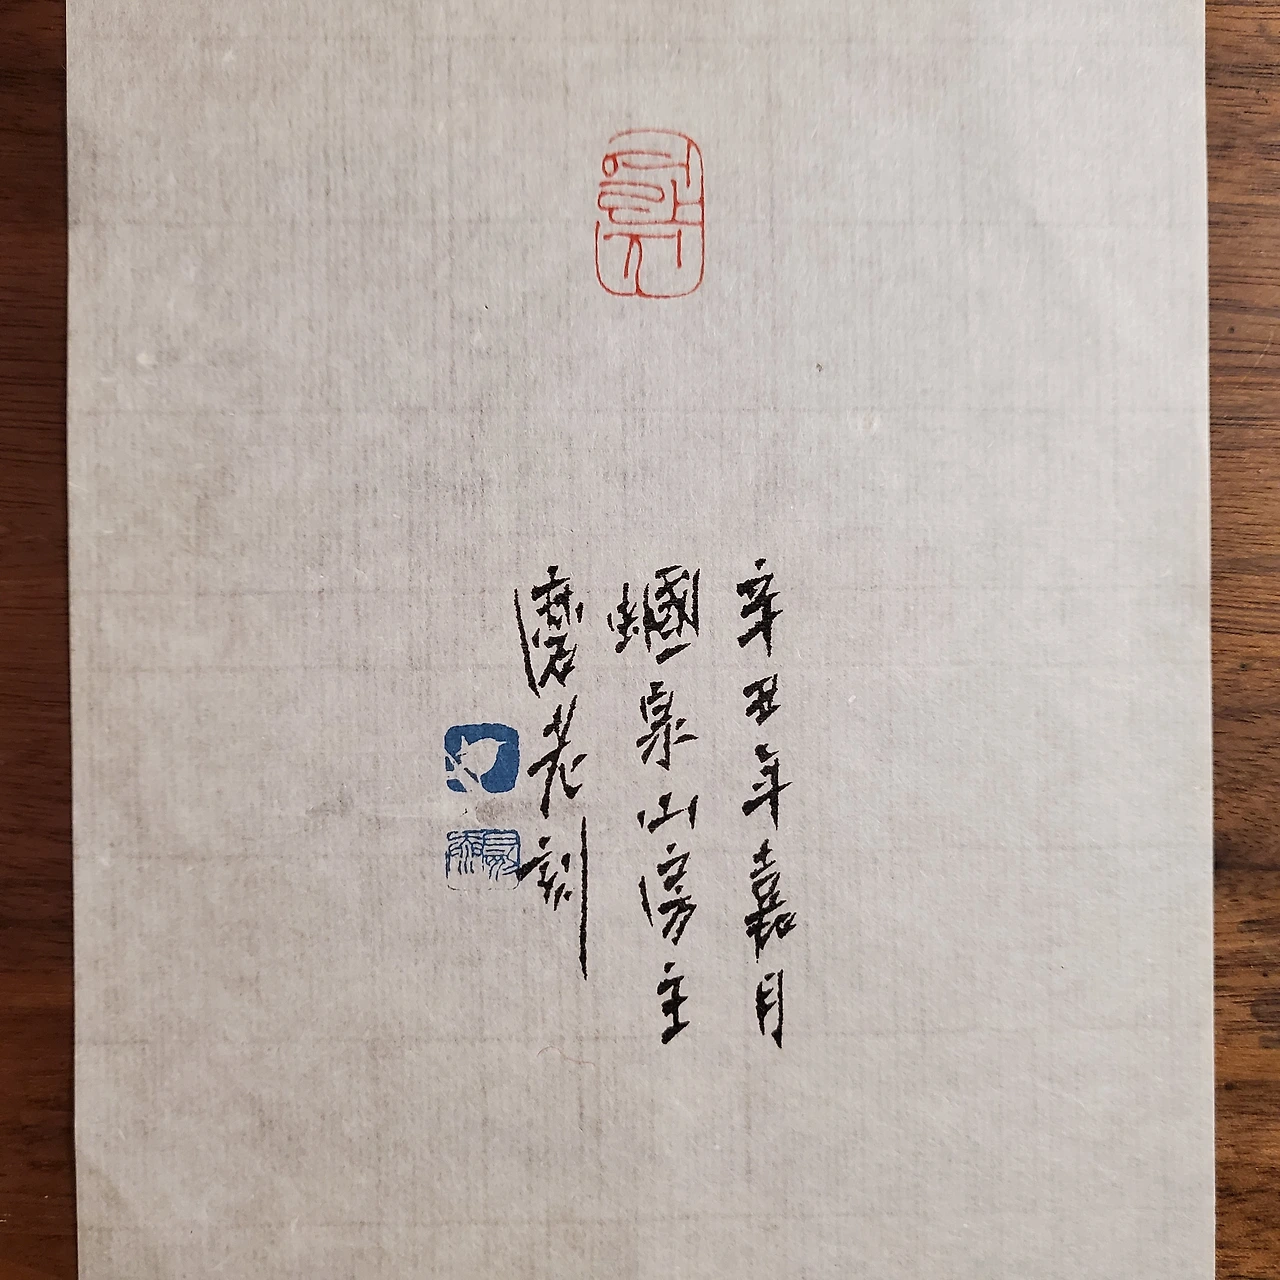 辛丑年嘉月
蟈泉山房主
磨老刻